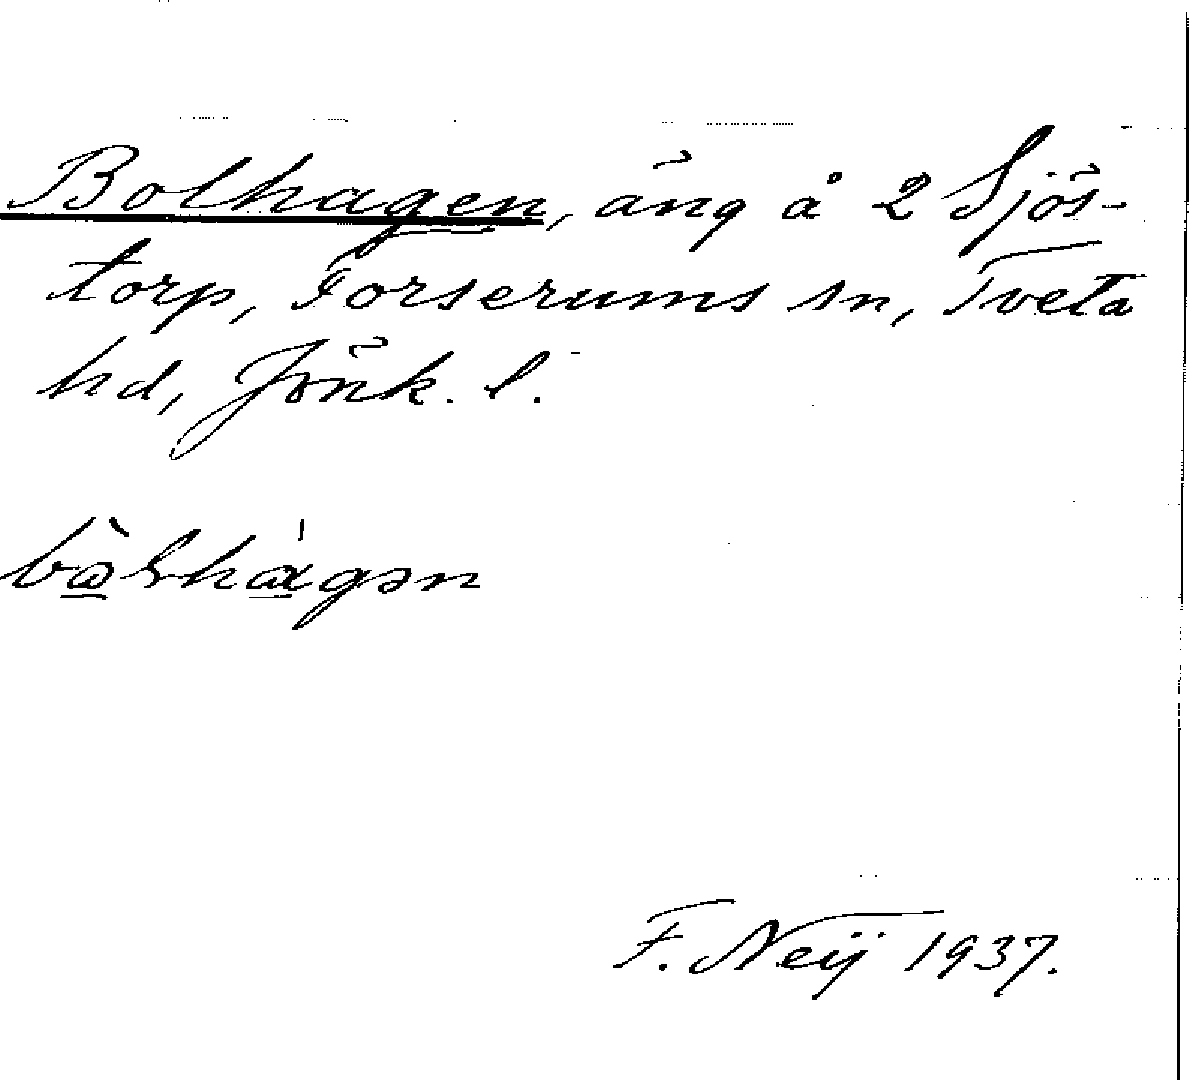 Bolhagen, äng å 2 Sjös-
torp, Forserums sn, Tveta
hd, Jönk. l.
F. Neij 1937.